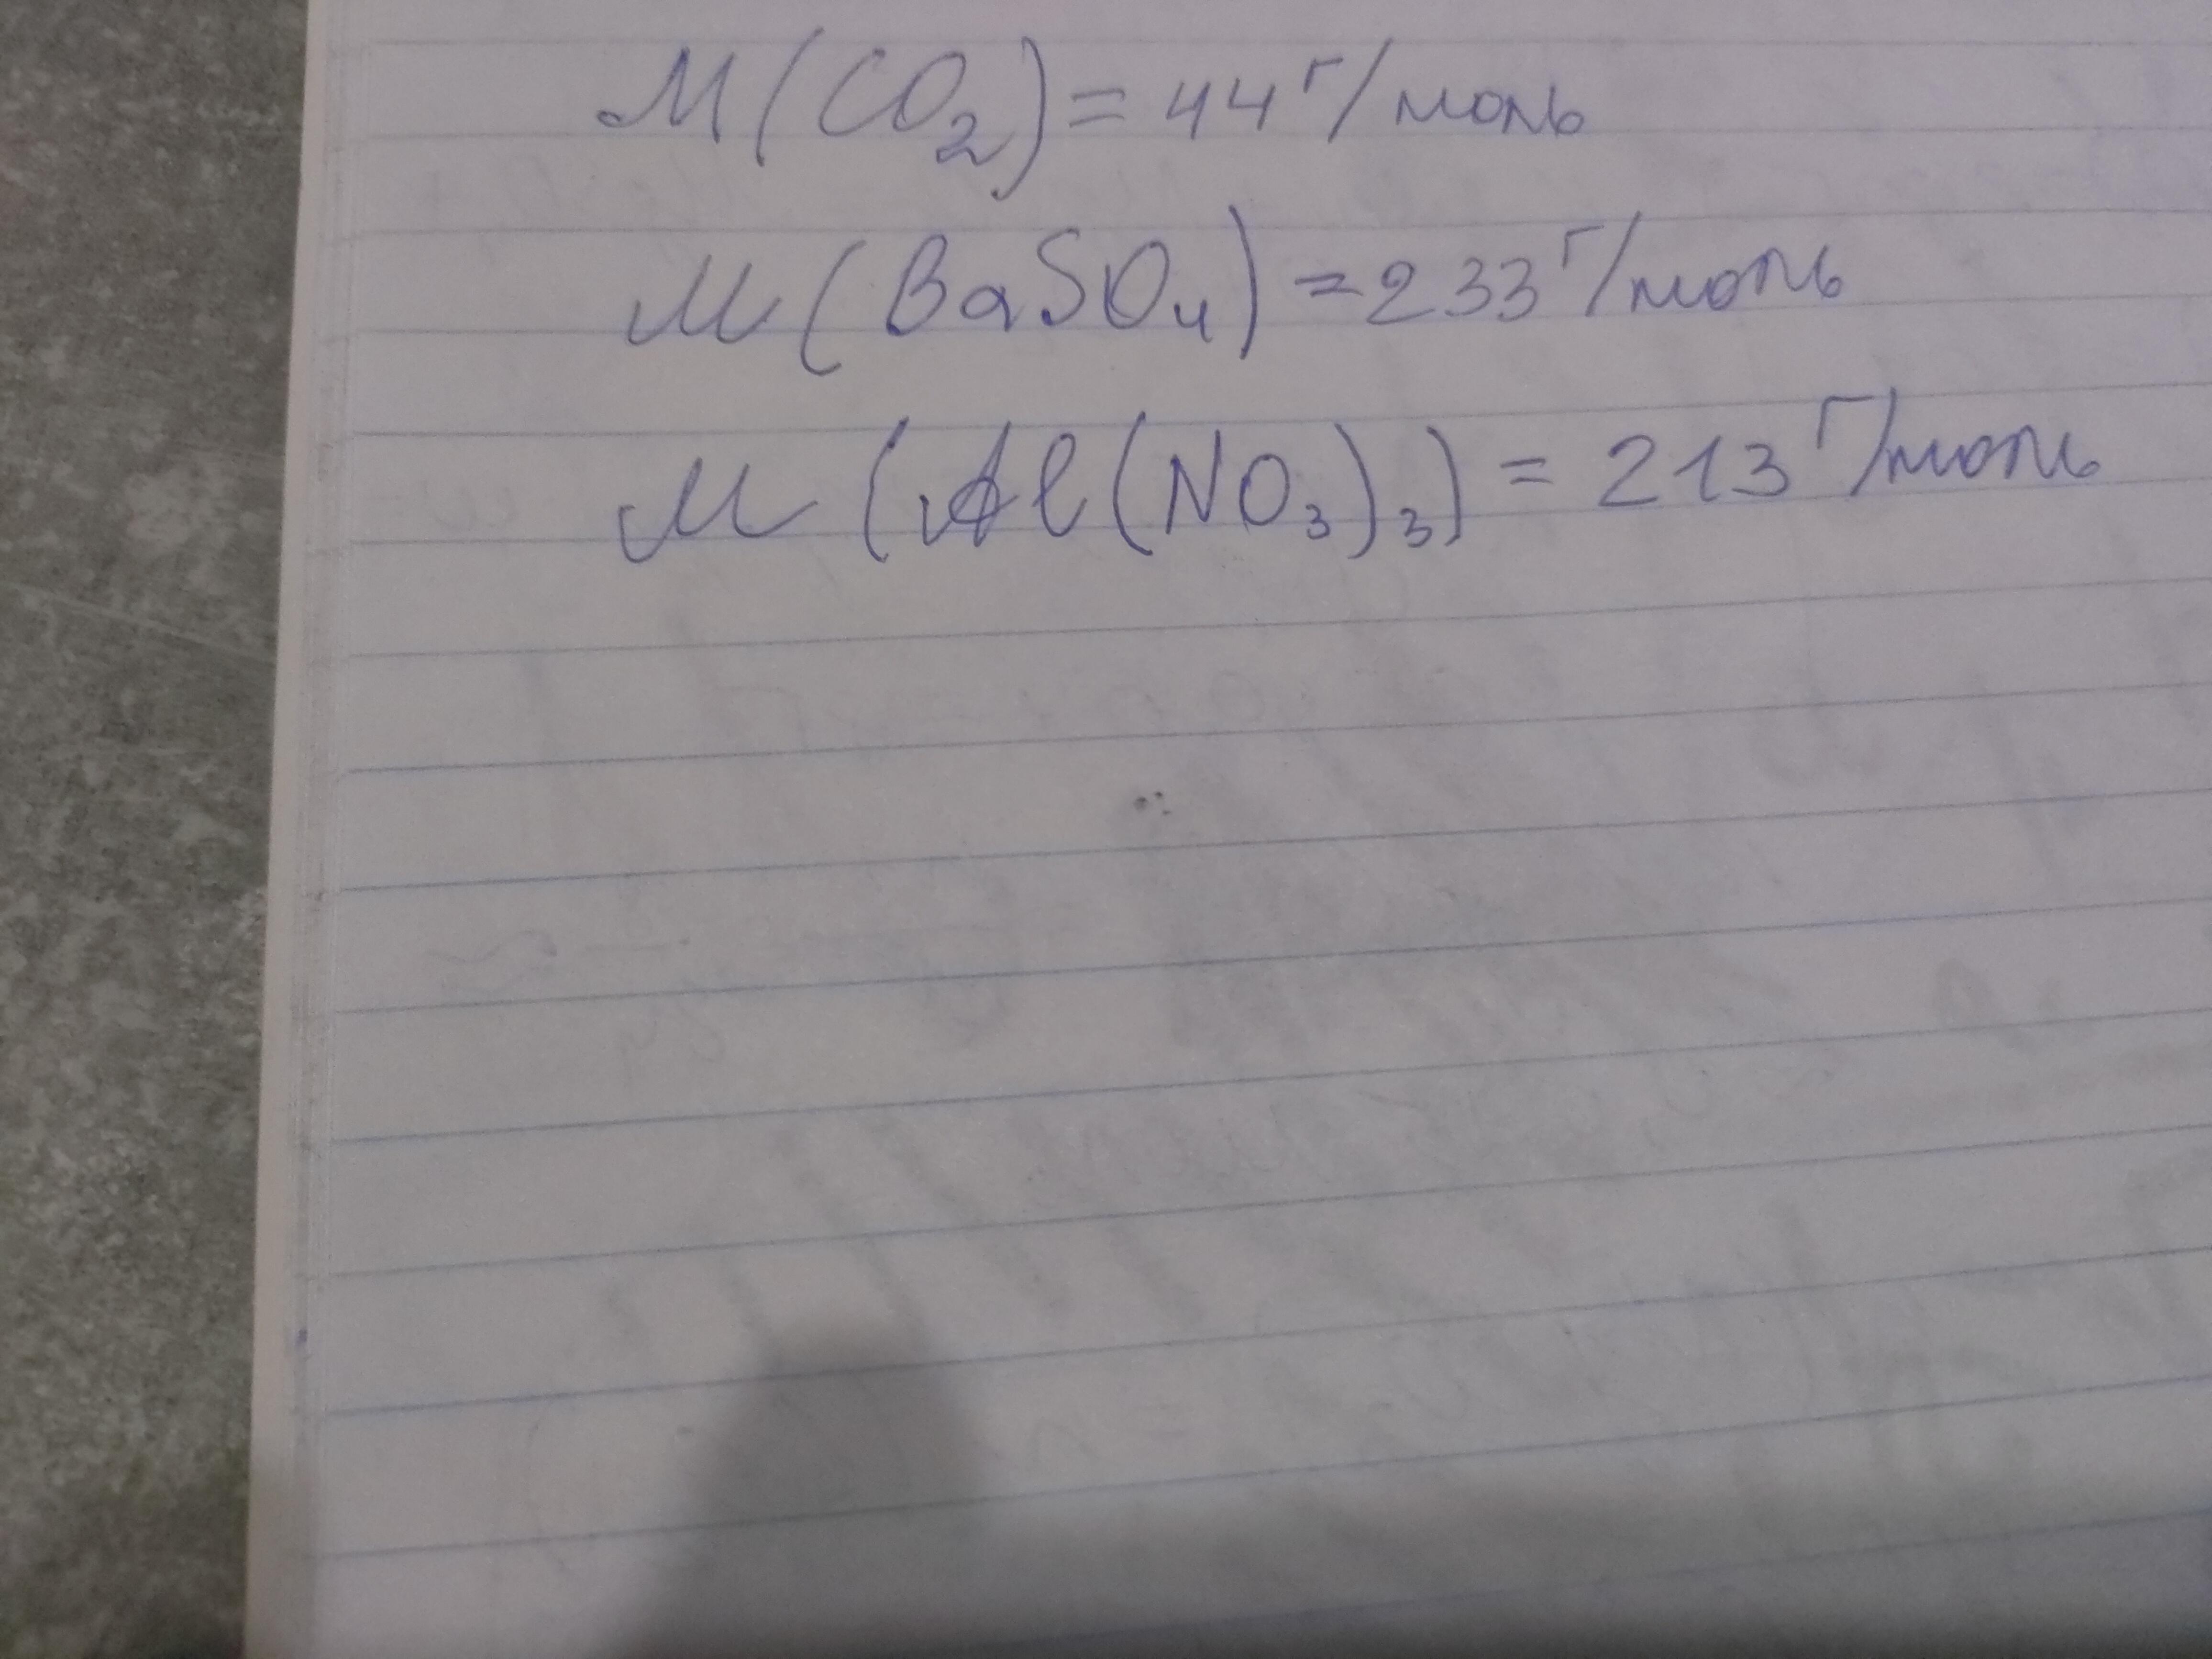 M(CO₂) = 44 г/моль
M(BaSO₄) = 233 г/моль
M(Al(NO₃)₃) = 213 г/моль